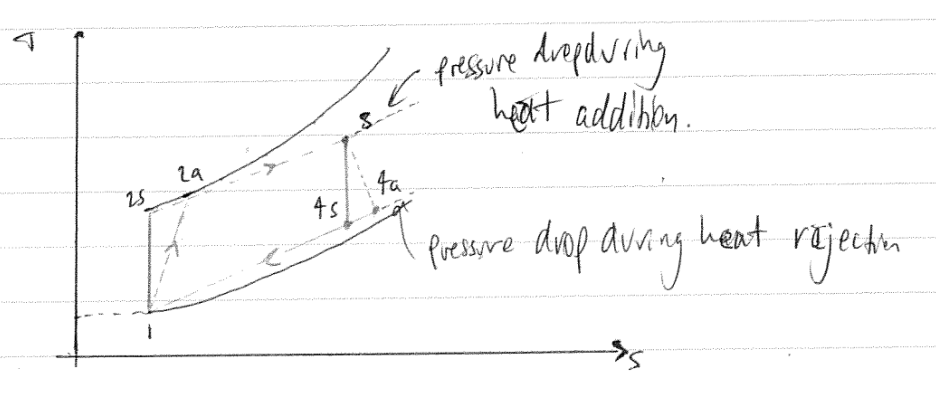 T
pressure drop during
heat addition.
3
2a
2s
4a
4s
pressure drop during heat rejection
1
s